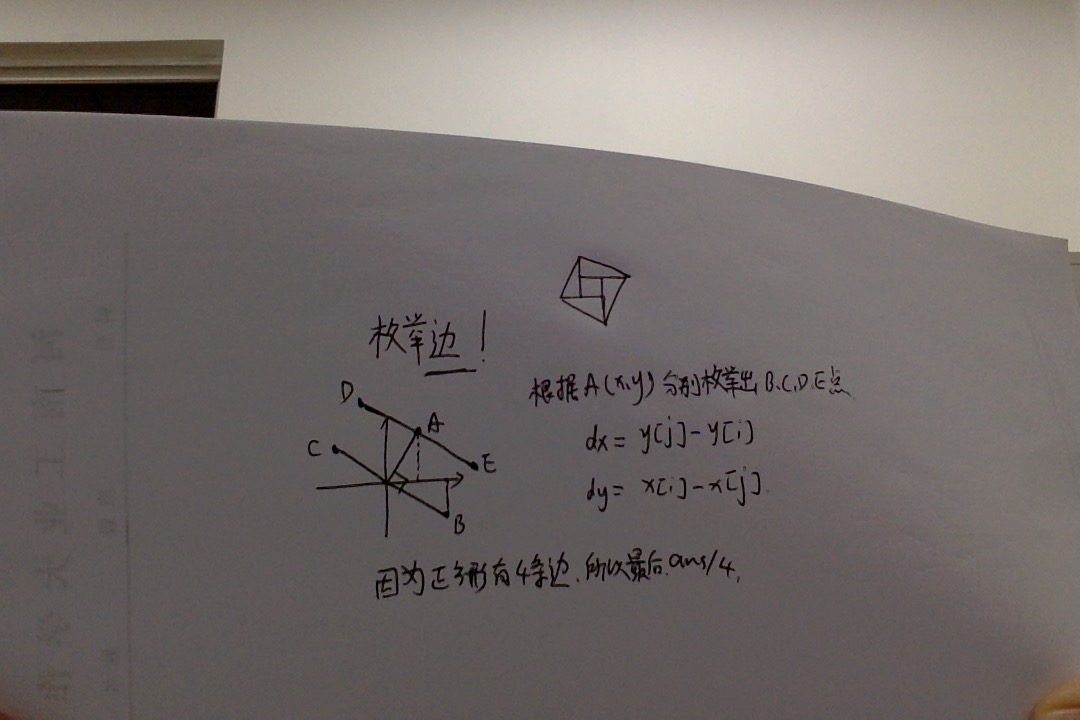 枚举边！
D
A
C
E
B
根据A(x,y)分别枚举出B.C.D.E点
dx= y[j]-y[i]
dy= x[i]-x[j].
因为正方形有4条边.所以最后.ans/4.